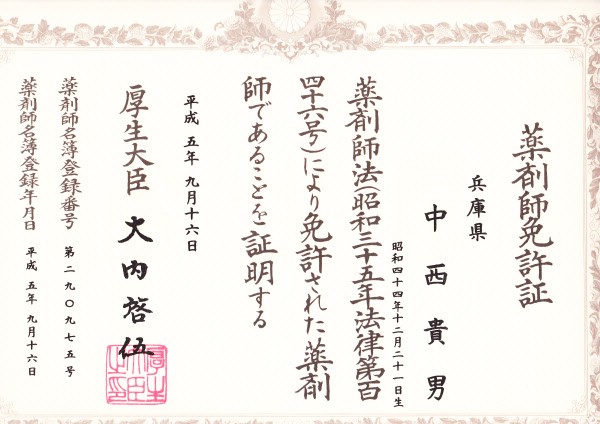 薬剤師免許証
兵庫県
中西貴男
昭和四十四年十二月二十一日生
薬剤師法(昭和三十五年法律第百
四十六号)により免許された薬剤
師であることを証明する
平成五年九月十六日
厚生大臣 大内啓伍
薬剤師名簿登録番号 第二九〇九七五号
薬剤師名簿登録年月日 平成五年九月十六日